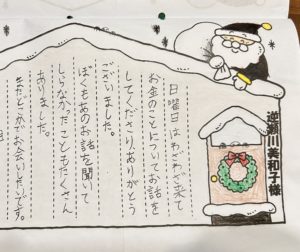 逆瀬川美和子様
日曜日はわざわざ来て
お金のことについてお話を
してくださりありがとう
ございました。
ぼくもあのお話を聞いて
しらなかったこともたくさん
ありました。
またどこかでお会いしたいです。